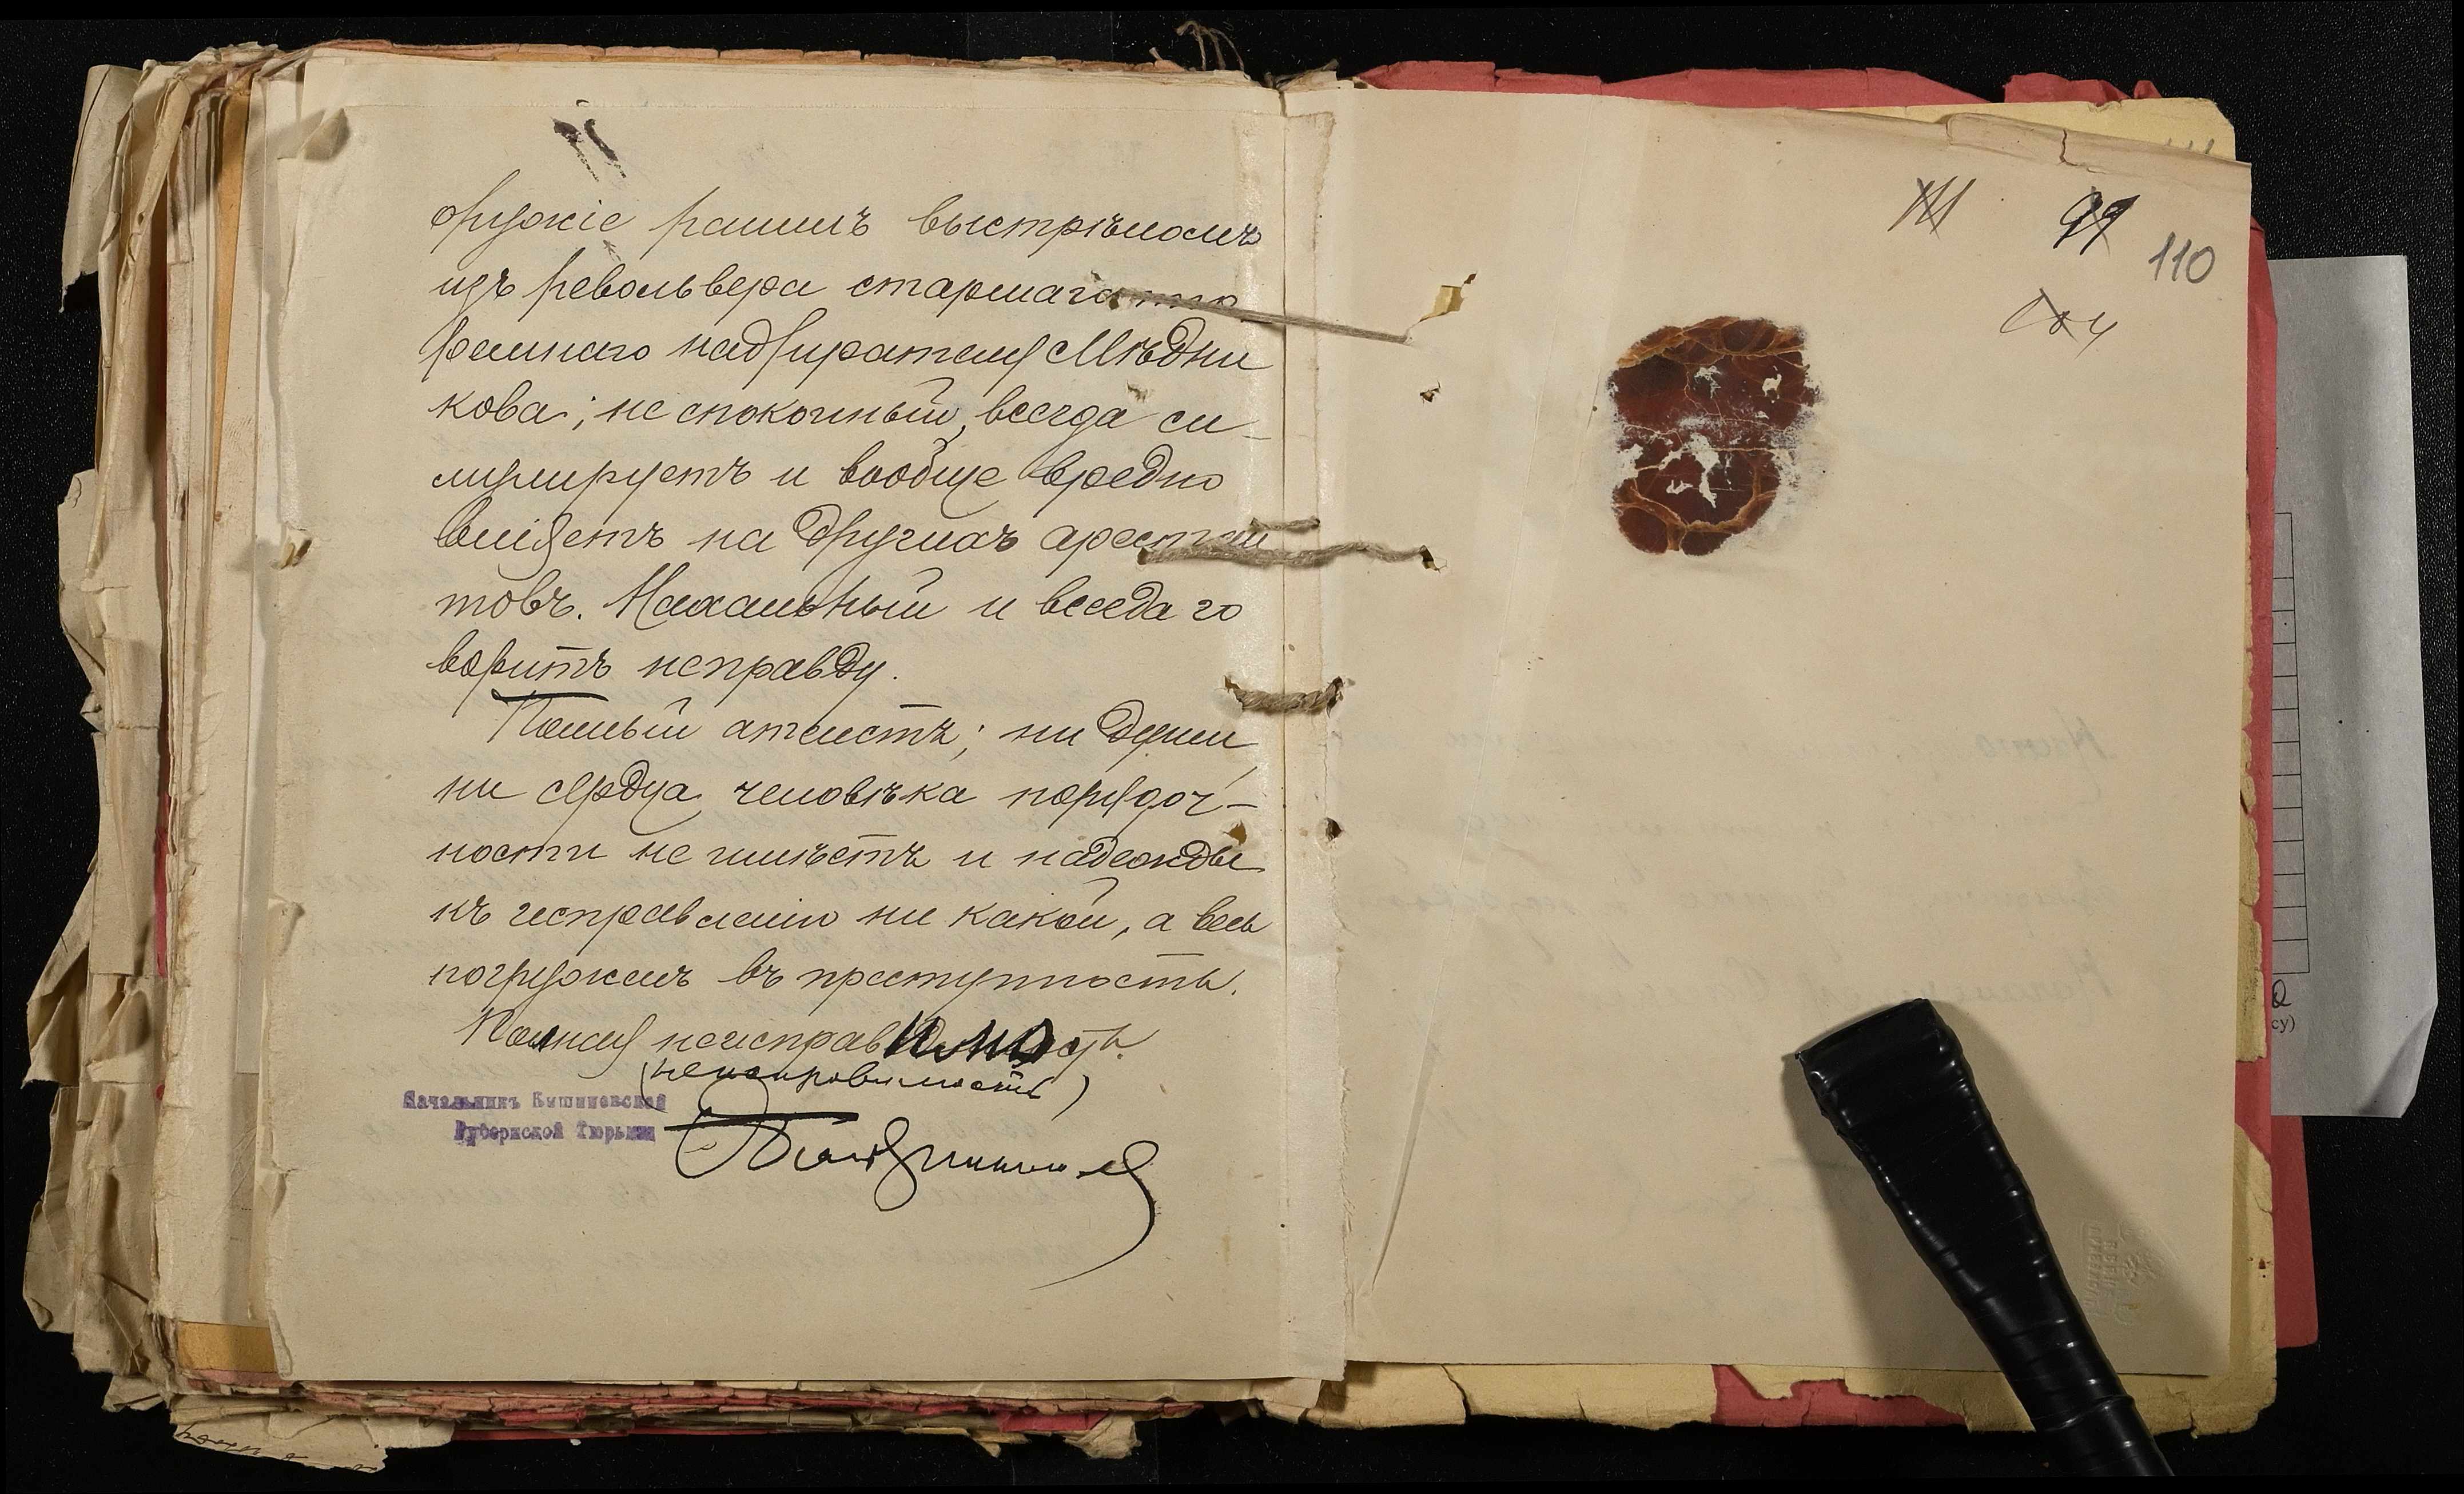 оружіе раниль выстрѣломъ
изъ револьвера старшаго тю
ремнаго надзирателя Мѣдни
кова; не спокойный, всегда си-
мулируетъ и вообще вредно
вліяетъ на другихъ арестан
товъ. Нахальный и всегда го
воритъ неправду.
Полный атеистъ; ни души,
ни сердца человѣка порядоч-
ности не имѣетъ и надежды
къ исправленію ни какой, а весь
погруженъ въ преступность.
Полная неисправимость.
(неисправимость)
Начальникъ Кишиневской
Губернской Тюрьмы
111
99
110
104